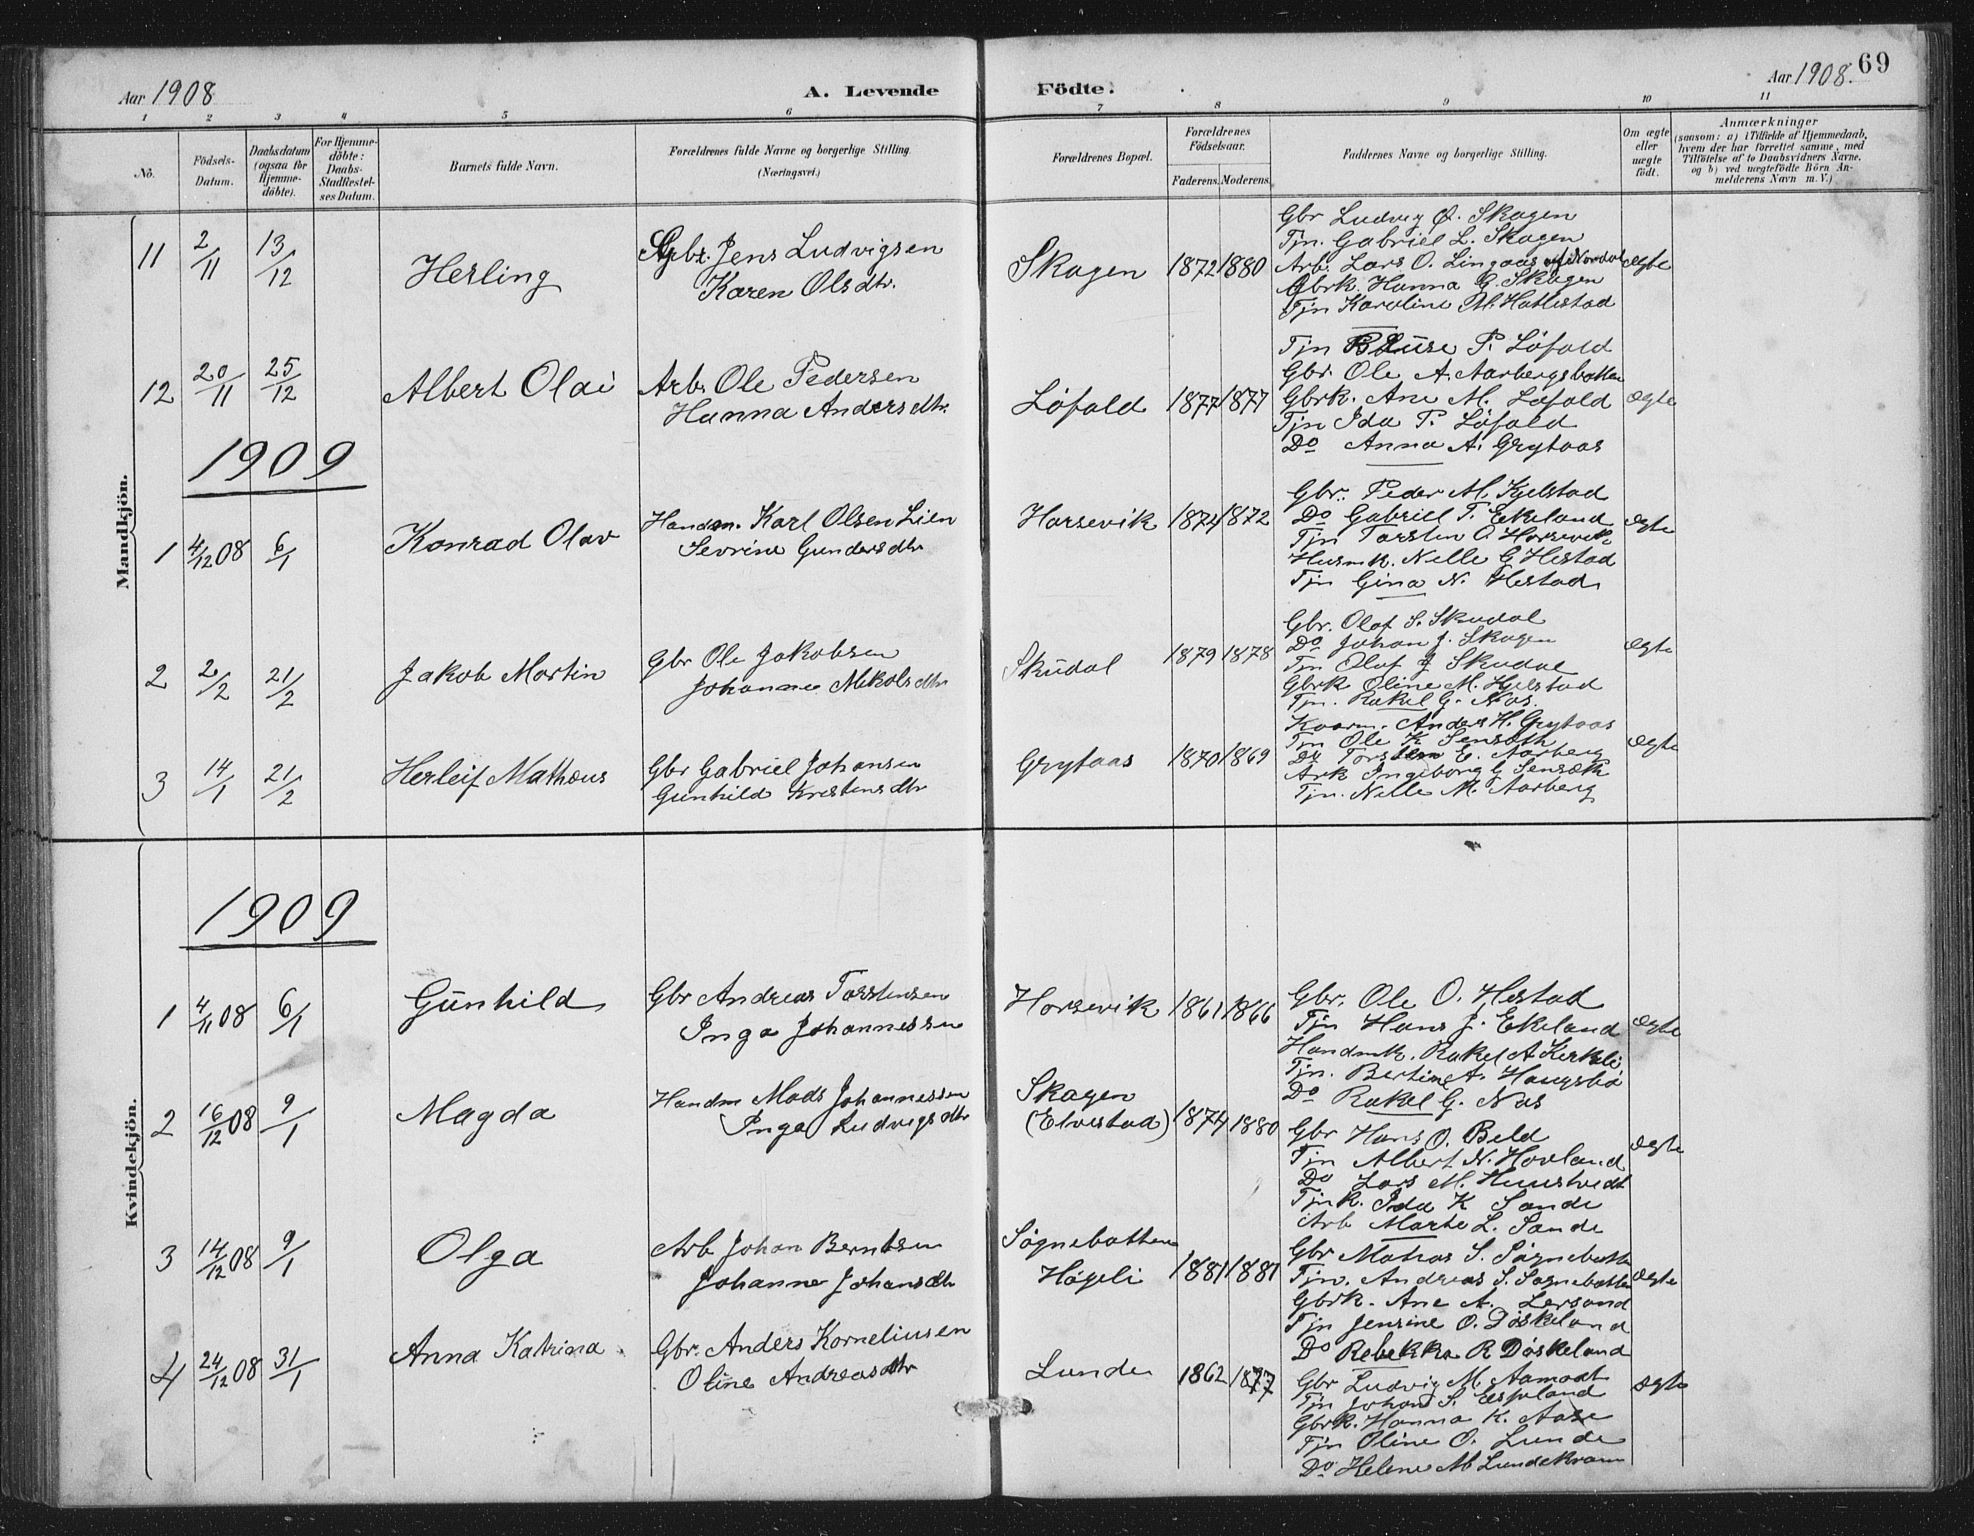 Aar 1908
A. Levende Födte.
Aar 1908. 69
1 2 3 4 5 6 7 8 9 10 11
No.
Födsels-Datum.
Daabsdatum (ogsaa for Hjemme-döbte).
For Hjemme-döbte: Daabs-Stadfæstel-ses Datum.
Barnets fulde Navn.
Forældrenes fulde Navne og borgerlige Stilling (Næringsvei.)
Forældrenes Bopæl.
Forældrenes Födselsaar.
Faderens. Moderens.
Faddernes Navne og borgerlige Stilling.
Om ægte eller uægte födt.
Anmærkninger
(saasom: a) i Tilfælde af Hjemmedaab, hvem der har forrettet samme, med Tilföielse af to Daabsvidners Navne, og b) ved uægtefödte Börn An-melderens Navn m. V.)
Mandkjön.
11 2/11 13/12 Herling
Gbr. Jens Ludvigsen
Karen Olsdtr.
Skagen 1872 1880
Gbr Ludvig Ø. Skagen
Tjn. Gabriel L. Skagen
Arb. Lars O. Lingaas Nordal
Gbrk. Hanna G. Skagen
Tjn Karoline M. Hatlestad
ægte
12 20/11 25/12 Albert Olai
Arb. Ole Pedersen
Hanna Andersdtr.
Löfald 1877 1877
Tjn P. Löfald
Gbr. Ole A. Aarbergsbotten
Gbrk. Ane M. Løfald
Tjn Ida P. Löfald
Do Anna A. Grytaas
ægte
1909
1 4/12 08 6/1 Konrad Olav
Handm. Karl Olsen Lien
Sevrine Gundersdtr
Horsevik 1874 1872
Gbr. Peder M. Kjelstad
Do Gabriel T. Ekeland
Tjn Torsten O Horsevik
Husmk. Nelle G. Hestad
Tjn Gina N. Hestad
ægte
2 2/2 21/2 Jakob Martin
Gbr Ole Jakobsen
Johanne Nikolsdtr
Skudal 1879 1878
Gbr. Olaf S. Skudal
Do Johan J. Skagen
Tjn Olaf J Skudal
Gbrk Oline M. Hjelstad
Tjn. Rakel G. Nas.
ægte
3 14/1 21/2 Herleif Matheus
Gbr Gabriel Johansen
Gunhild Kristensdtr
Grytaas 1870 1869
Kaarm. Anders H. Grytaas
Tjn Ole K Senstk
Do Torstein E. Aarberg
Ark Ingeborg G Sensæk
Tjn. Nelle M. Aarberg
ægte
Kvindekjön.
1909
1 4/11 08 6/1 Gunhild
Gbr Andreas Torstensen
Inga Johannessen
Horsevik 1861 1866
Gbr. Ole O. Hestad
Tjn Hans J. Ekeland
Handmk. Rakel A Kerkli
Tjn. Bertine A. Haugsbö
Do Rakel G. Nas
ægte
2 16/12 08 9/1 Magda
Handm Mads Johannessen
Inga Ludvigsdtr
Skagen
(Elvestad) 1874 1880
Gbr Hans O. Beld
Tjn Albert N. Hovland
Do Lars M. Hunstvedt
Tjnk. Ida K Sande
Arb Marte L. Sande
ægte
3 14/12 08 9/1 Olga
Arb Johan Berntsen
Johanne Johansdtr
Sögnebotten
Högeli 1881 1881
Gbr Matias S. Sögnebotten
Tjn. Andreas S. Sognebotten
Gbrk. Ane A. Lersund
Tjn Jensine O. Döskeland
Do Rebekka R Döskeland
ægte
4 24/12 08 31/1 Anna Katrina
Gbr. Anders Korneliusen
Oline Andreasdtr
Lunde 1862 1877
Gbr Ludvig M. Aamodt
Tjn Johan S. Espeland
Gbrk. Hanna K. Aase
Tjn Oline O. Lunde
Do Helene M Lundekvam
ægte